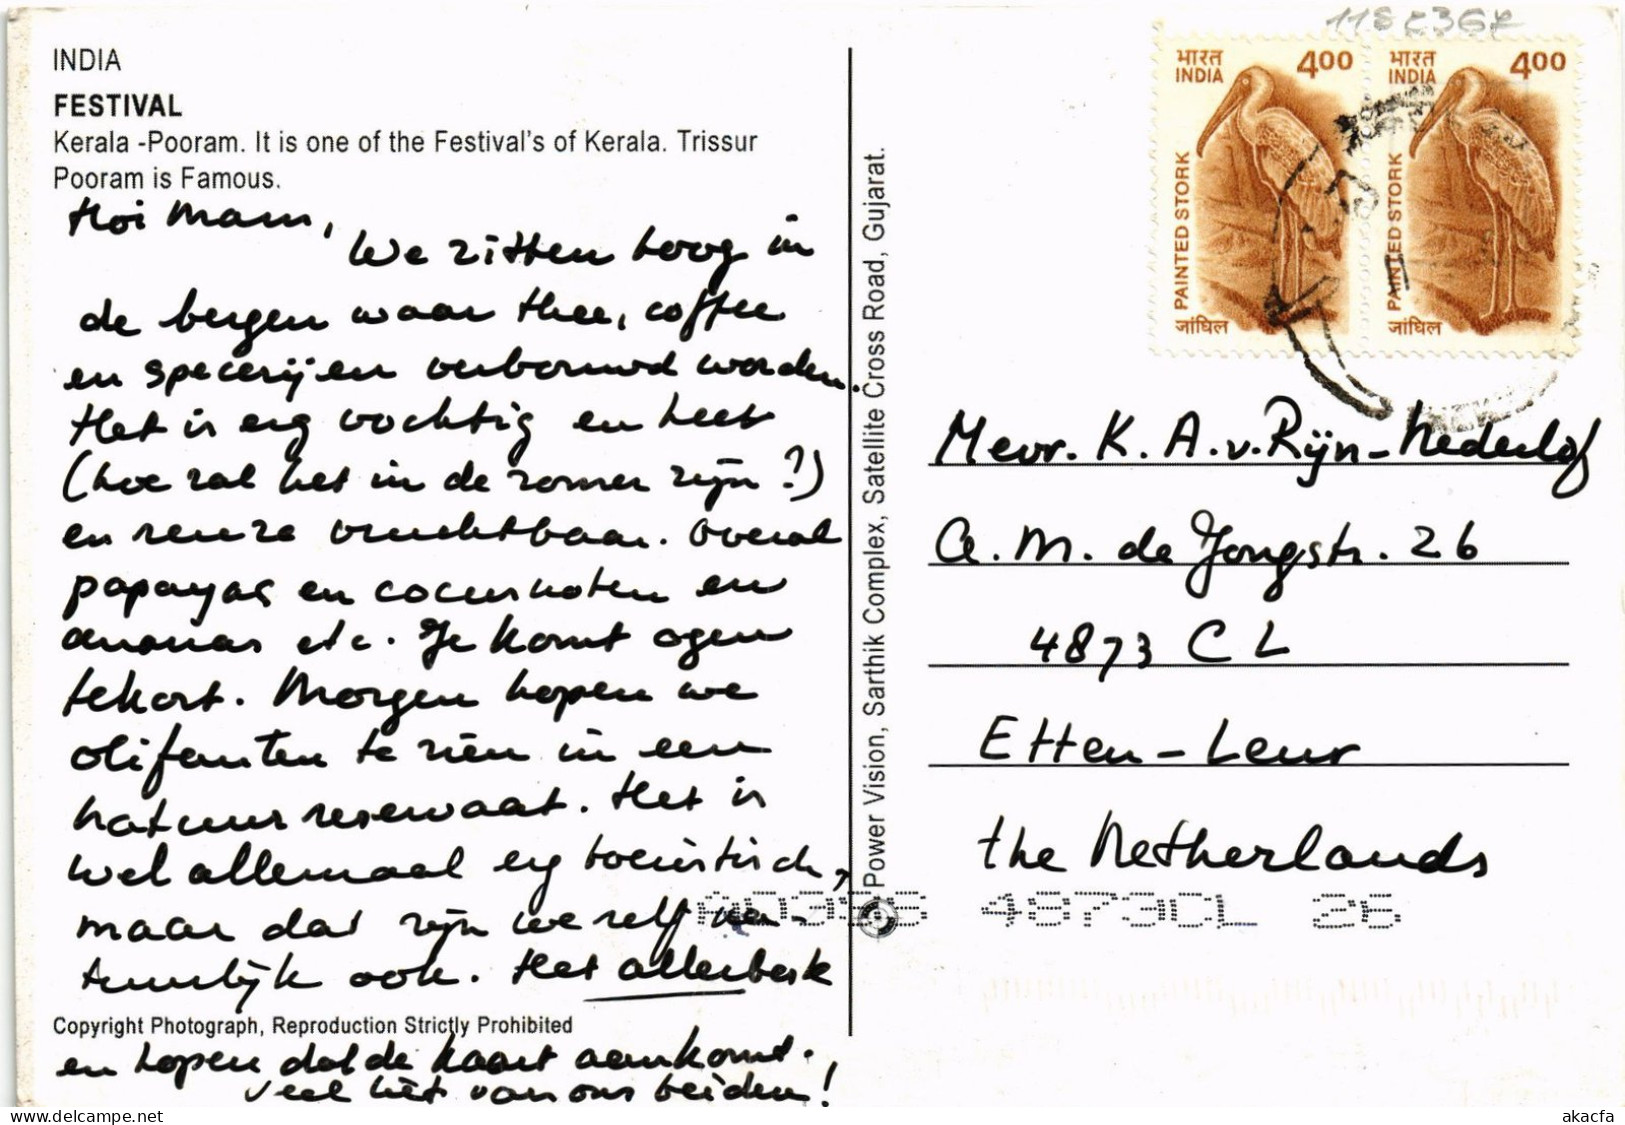 INDIA
FESTIVAL
Kerala -Pooram. It is one of the Festival's of Kerala. Trissur
Pooram is Famous.
Hoi Mam,
We zitten hoog in
de bergen waar thee, coffee
en specerijen verbouwd worden.
Het is erg vochtig en heet
(hoe zal het in de zomer zijn?)
en reuze vruchtbaar. Overal
papayas en cocusnoten en
ananas etc. Je komt ogen
tekort. Morgen hopen we
olifanten te zien in een
natuurreservaat. Het is
wel allemaal erg toeristisch,
maar dat zijn we zelf na-
tuurlijk ook. Het allerbeste
Copyright Photograph, Reproduction Strictly Prohibited
en hopen dat de kaart aankomt.
Veel liefs van ons beiden!
Power Vision, Sarthik Complex, Satellite Cross Road, Gujarat.
भारत
INDIA
400
PAINTED STORK
जांघिल
भारत
INDIA
400
PAINTED STORK
जांघिल
Mevr. K. A. v. Rijn-Nederlof
A. M. de Jongstr. 26
4873 CL
Etten-Leur
the Netherlands
4873CL 26
akacfa